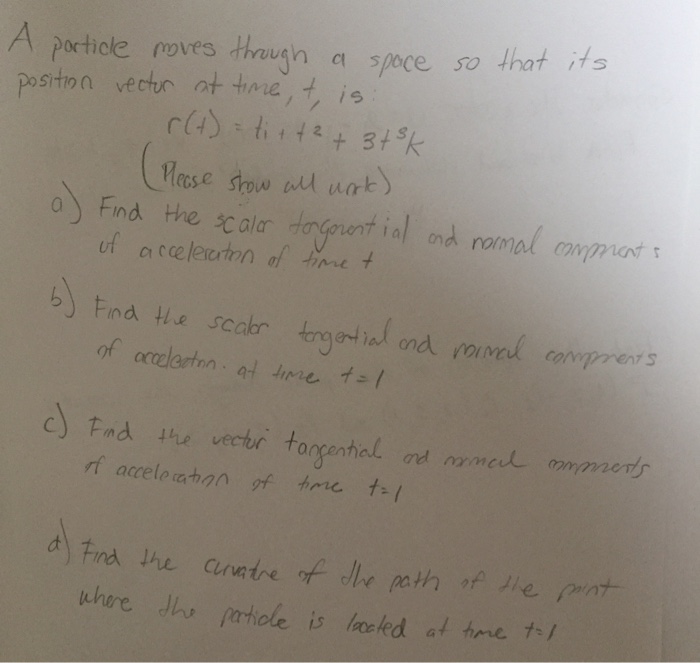 A particle moves through a space so that its
position vector at time, t, is:
r(t) = ti + t² + 3t³k
(Please show all work)
a) Find the scalar tangential and normal components
of acceleration at time t
b) Find the scalar tangential and normal components
of acceleration at time t=1
c) Find the vector tangential and normal components
of acceleration at time t=1
d) Find the curvature of the path at the point
where the particle is located at time t=1